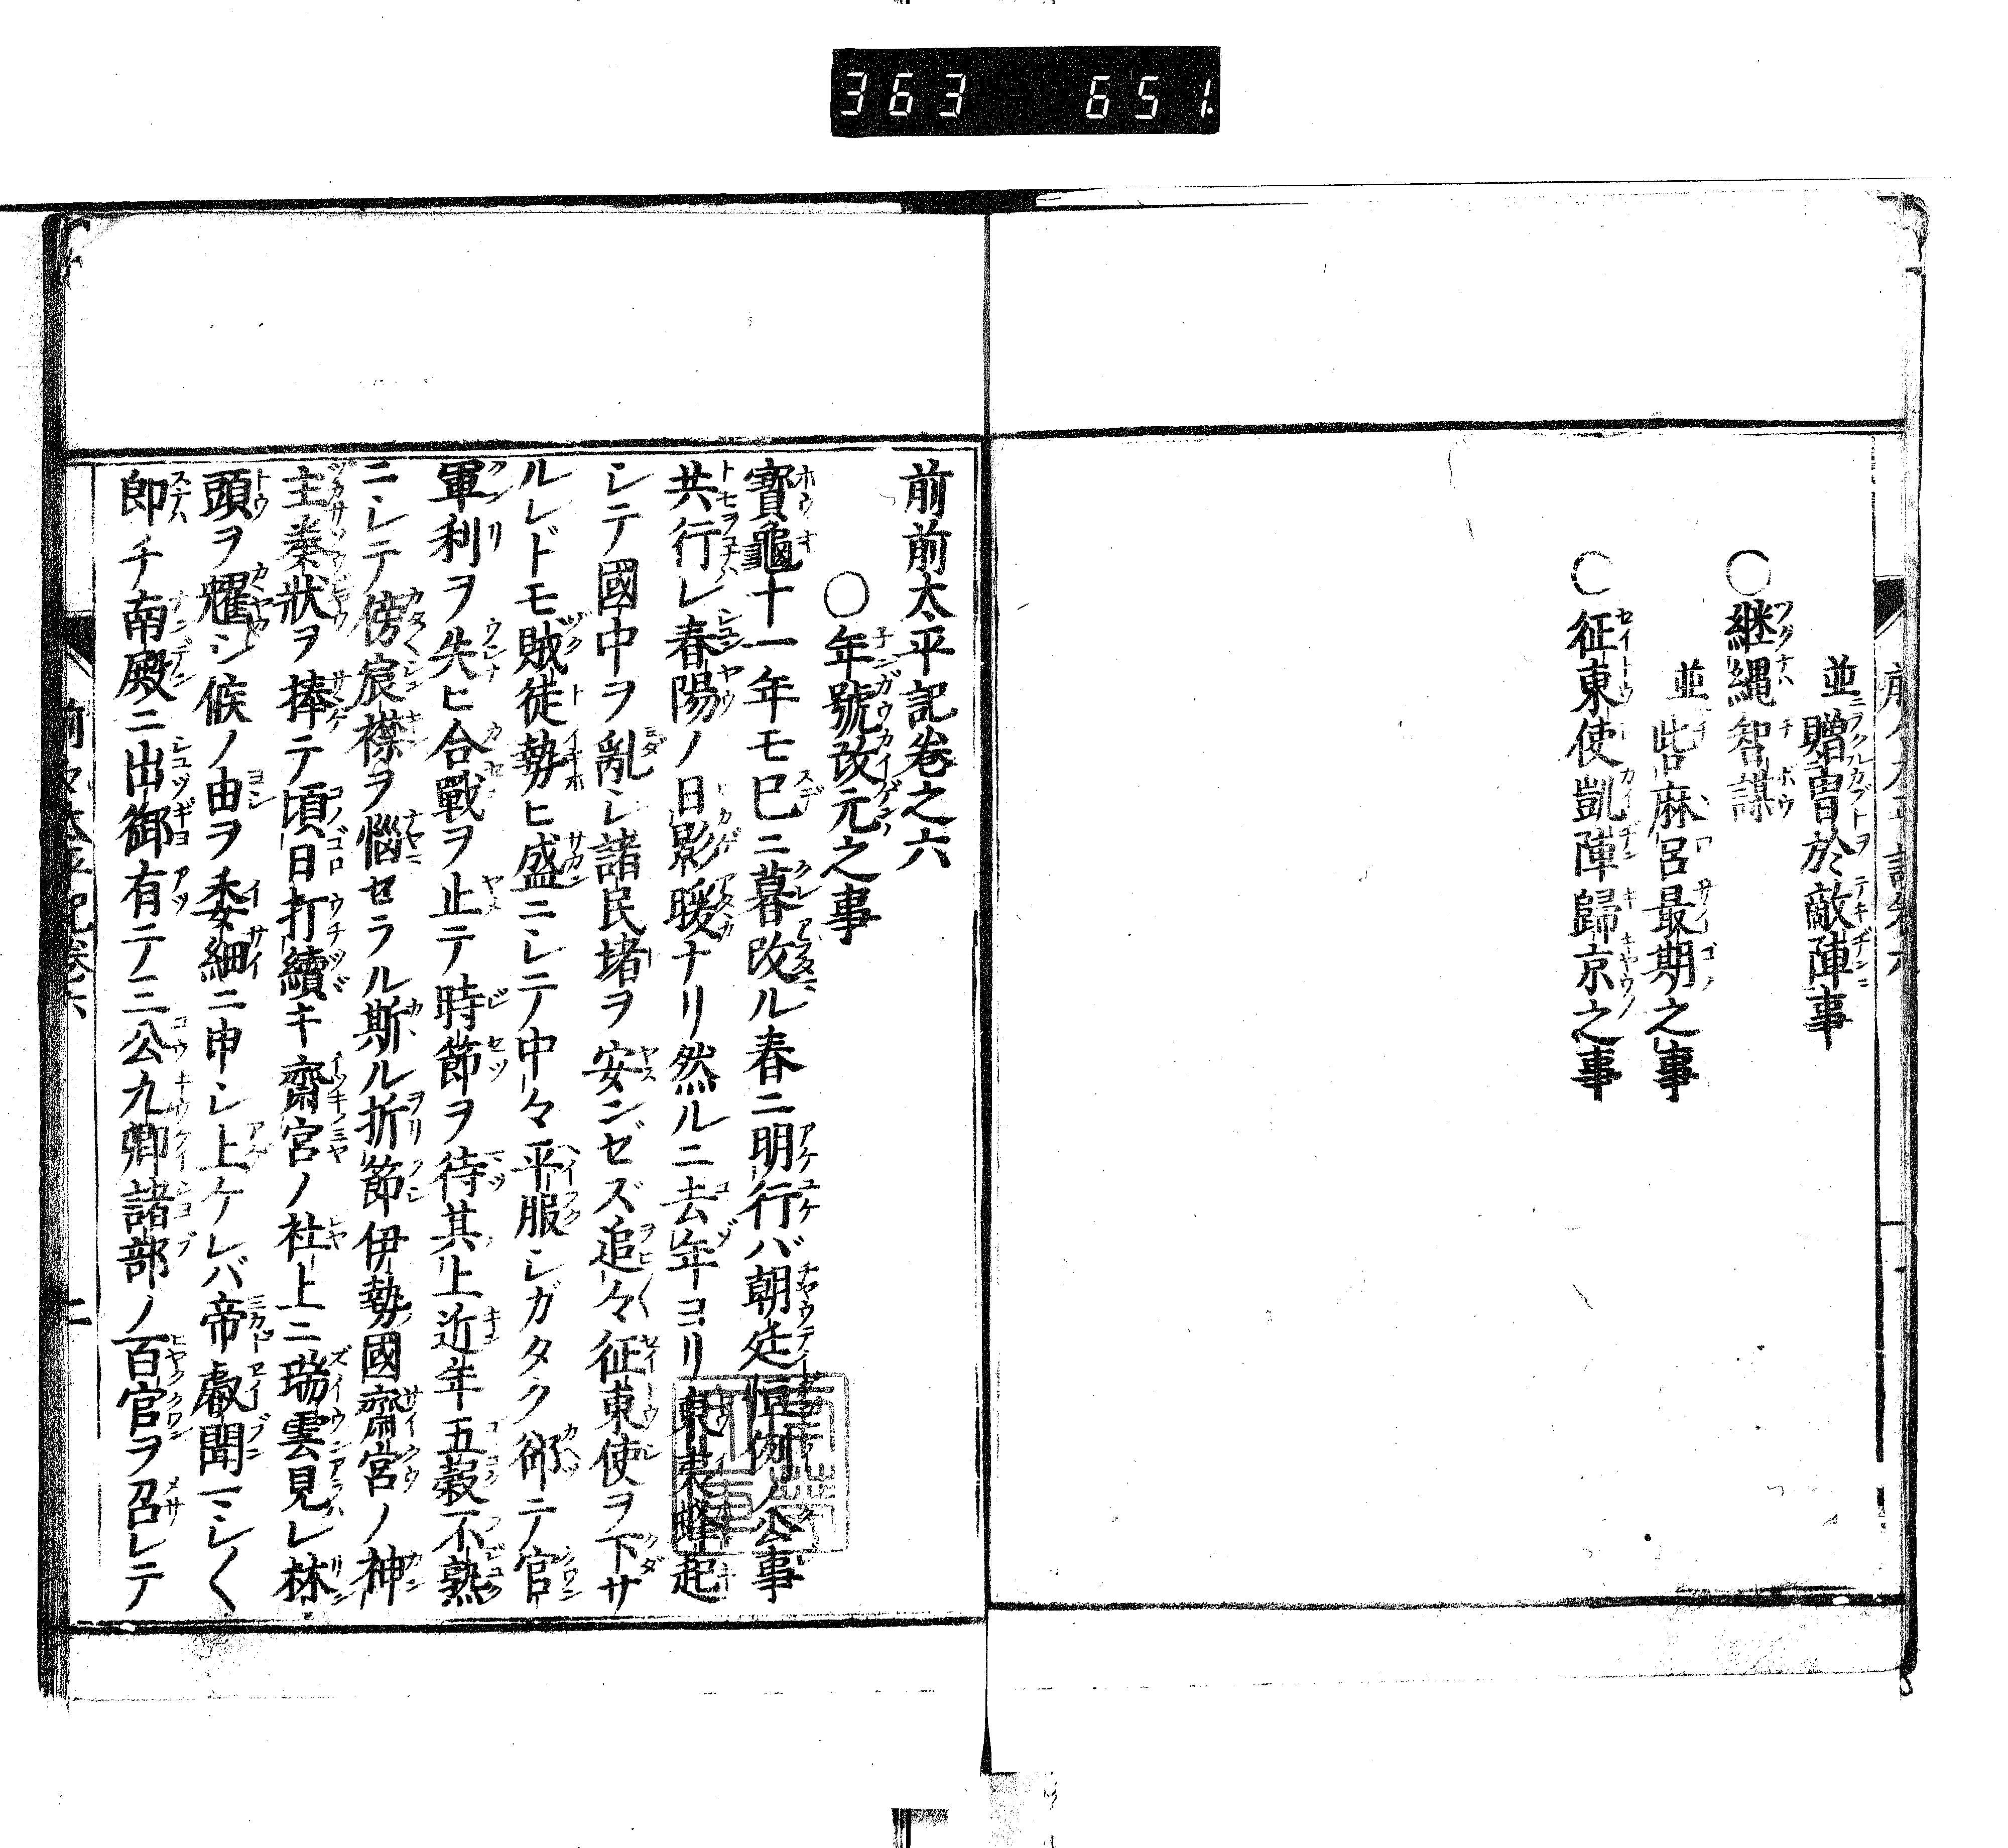 363 651
並贈冑於敵陣事
○継縄智謀
並呰麻呂最期之事
○征東使凱陣歸京之事
前前太平記巻之六
○年號改元之事
寳龜十一年モ已ニ暮改ル春ニ明行バ朝廷恒例ノ公事
共行レ春陽ノ日影暖ナリ然ルニ去年ヨリ東夷蜂起
シテ國中ヲ亂シ諸民堵ヲ安ンゼズ追々征東使ヲ下サ
ルレドモ賊徒勢ヒ盛ニシテ中々平服シガタク郤テ官
軍利ヲ失ヒ合戰ヲ止テ時節ヲ待其上近年五穀不熟
ニシテ傍宸襟ヲ惱セラル斯ル折節伊勢國齋宮ノ神
主奏狀ヲ捧テ頃日打續キ齋宮ノ社上ニ瑞雲見レ林
頭ヲ耀シ候ノ由ヲ委細ニ申シ上ケレバ帝叡聞ミシく
即チ南殿ニ出御有テ三公九卿諸部ノ百官ヲ召レテ
前々太平記巻六 二